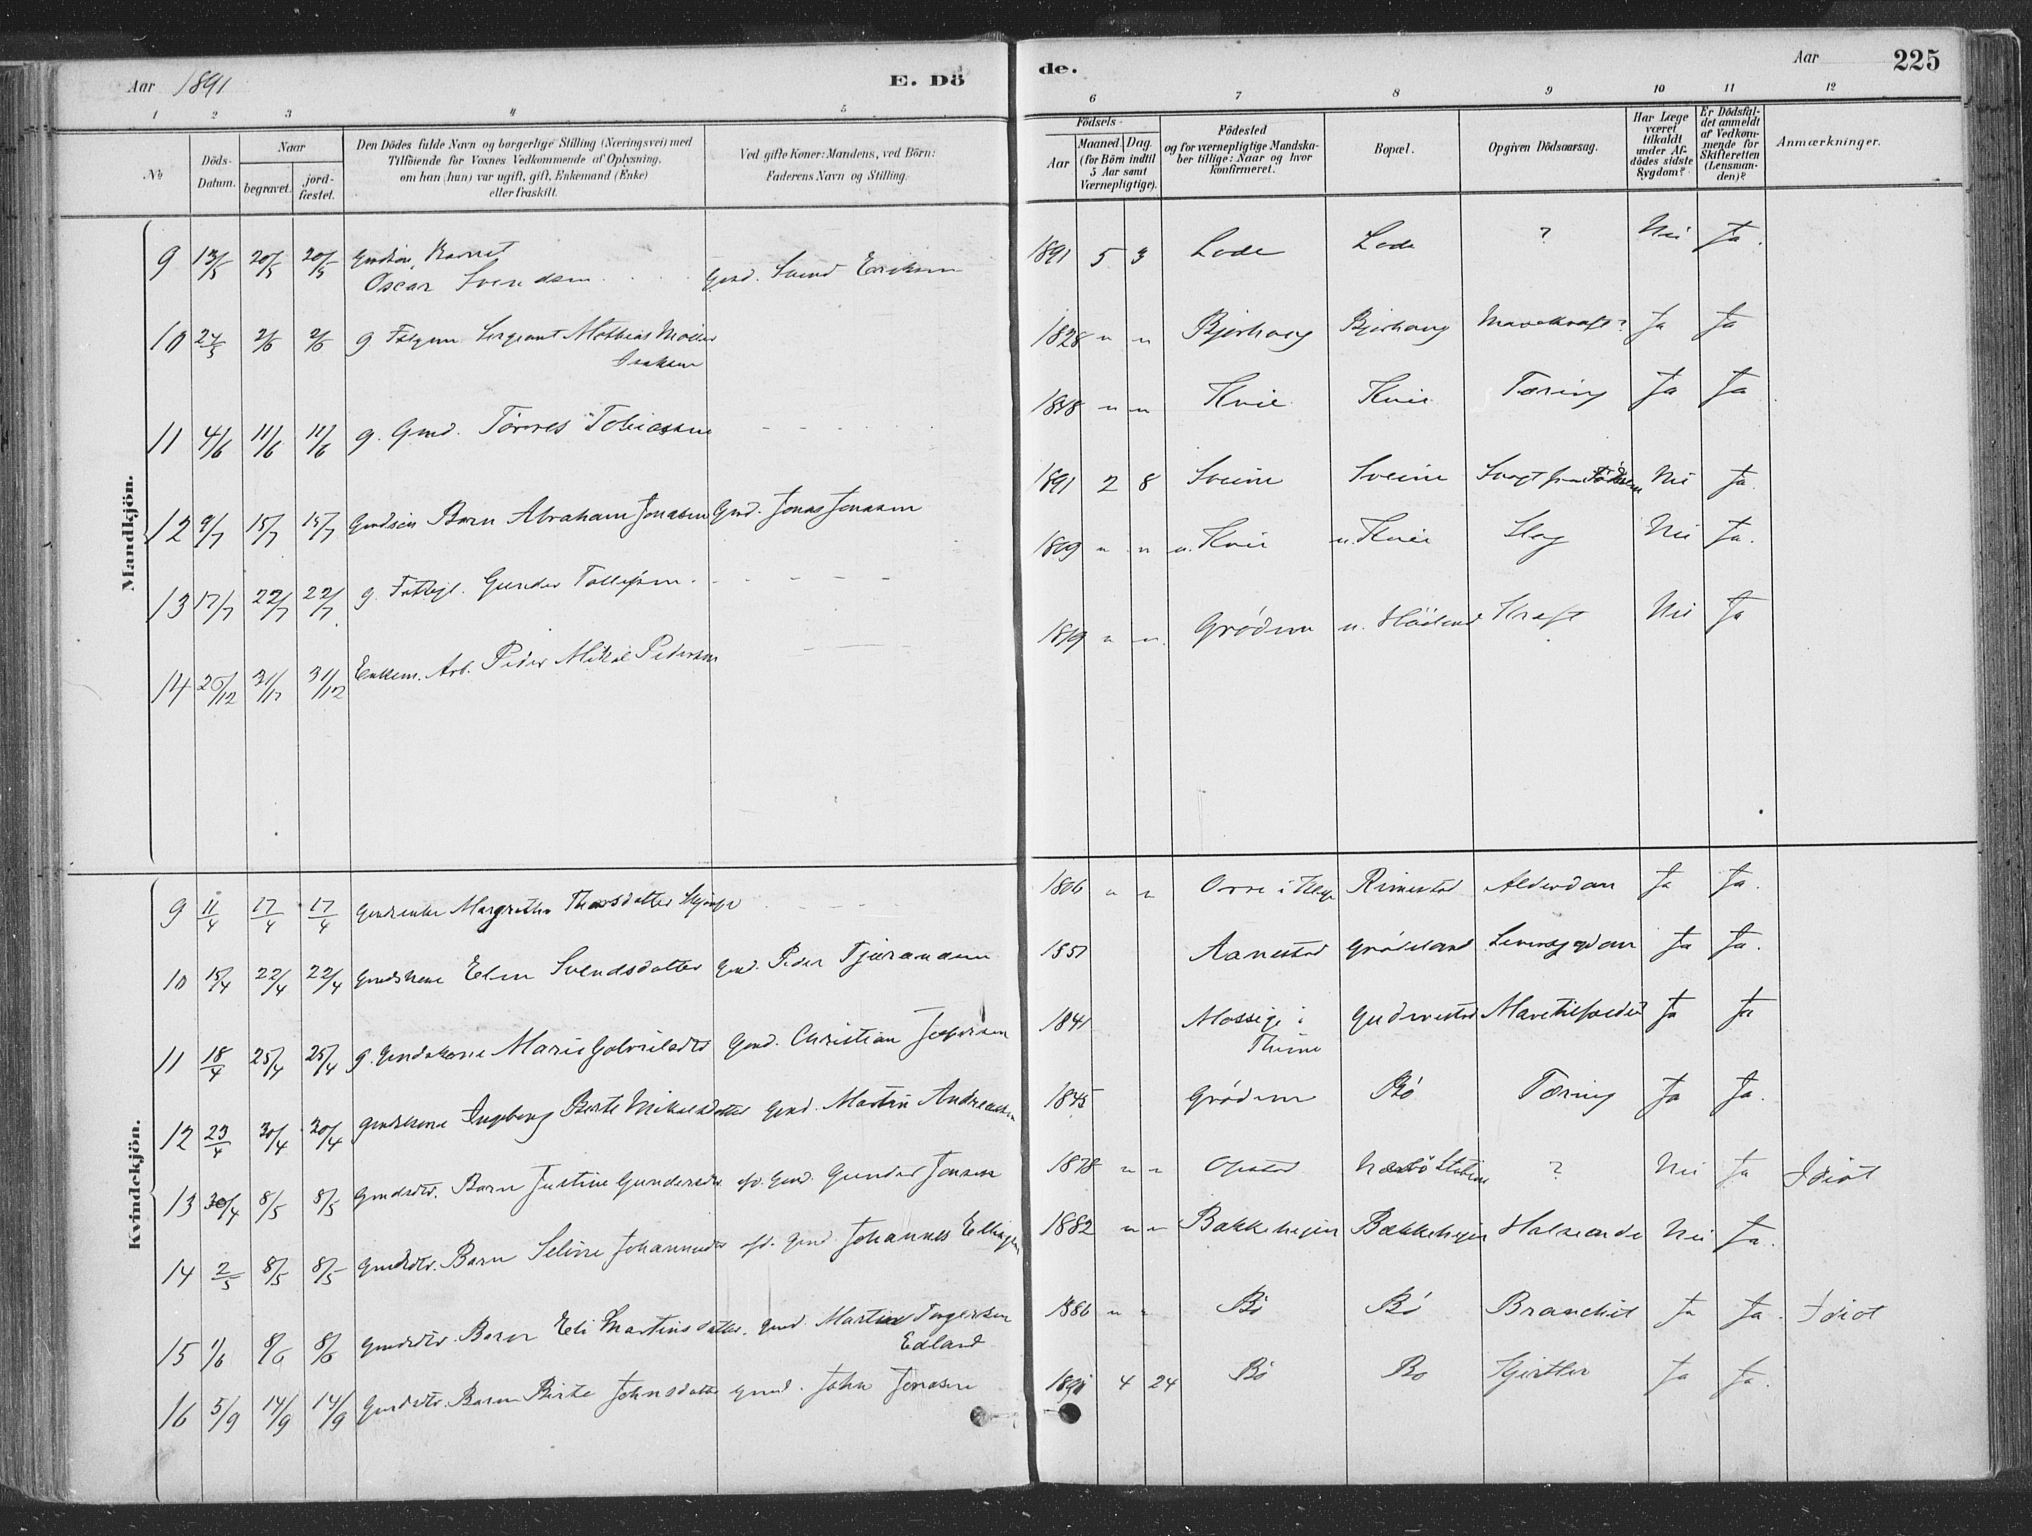 Aar 1891
E. Dö
de.
Aar
225
1 2 3 4 5 6 7 8 9 10 11 12
No
Döds-Datum.
Naar
begravet.
jord-fæstet.
Den Dödes fulde Navn og borgerlige Stilling (Næringsvei) med
Tilföiende for Voxnes Vedkommende af Oplysning,
om han (hun) var ugift, gift, Enkemand (Enke)
eller fraskilt.
Ved gifte Koner: Mandens, ved Börn:
Faderens Navn og Stilling.
Födsels-
Aar
Maaned. Dag.
(for Börn indtil
5 Aar samt
Værnepligtige).
Födested
og for værnepligtige Mandska-
ber tillige: Naar og hvor
konfirmeret.
Bopæl.
Opgiven Dödsaarsag.
Har Læge
været
tilkaldt
under Af-
dödes sidste
Sygdom?
Er Dödsfal-
det anmeldt
af Vedkom-
mende for
Skifteretten
(Lensman-
den)?
Anmærkninger.
Mandkjön.
9 13/5 20/5 20/5 Gmdsön, Barnet
Oscar Svendsen Gmd. Svend Eriksen 1891 5 3 Lode Lode ? Nei Ja.
10 24/5 2/6 2/6 g. Sergeant Mathias Möller
Isaksen 1828 " " Bjorhaug Bjorhaug Mavekræft? Ja Ja
11 4/6 11/6 11/6 g. Gmd. Törres Tobiassen 1848 " " Kvie Kvie Tæring Ja Ja
12 9/7 15/7 15/7 Gmdsön Barn Abraham Jonasen Gmd. Jonas Jonasen 1891 2 8 Sveine Sveine Svagt fra Födselen Nei Ja.
13 17/7 22/7 22/7 g. Fattigl. Gunder Tollefsen 1809 " " u. Kvie u. Kvie Slag Nei Ja.
14 25/12 31/12 31/12 Enkem. Arb. Peder Mikal Pedersen 1819 " " Grödem u. Höiland Kræft Nei Ja
Kvindekjön.
9 11/4 17/4 17/4 Gmdsenke Margrethe Thorsdatter 1806 " " Orre i Klep Rimestad Alderdom Ja Ja.
10 15/4 22/4 22/4 Gmdskone Elen Svendsdatter Gmd. Peder Tjerandsen 1851 Aanestad Grödeland Leversygdom Ja Ja.
11 18/4 25/4 25/4 g. Gmdskone Marie Gabrielsdtr Gmd. Christian Jespersen 1841 Mossige i
Thime Gudmestad Mavetilfælde Ja Ja
12 23/4 30/4 30/4 Gmdskone Ingeborg Berte Mikkelsdatter Gmd. Martin Andreassen 1845 Grödem Bö Tæring Ja Ja.
13 30/4 8/5 8/5 Gmdsdtr. Barn Justine Gundersdtr. af. Gmd. Gunder Jonsen 1878 " " Opstad Nærbö Station ? Nei Ja Idiot
14 2/5 8/5 8/5 Gmdsdtr. Barn Seline Johannesdtr af. Gmd. Johannes Ellingsen 1882 " " Bakkehejen Bakkehejen Halseonde Nei Ja.
15 1/6 8/6 8/6 Gmdsdtr. Barn Eli Martinsdatter. Gmd. Martin Torgersen
Edland 1886 " " Bö Bö Bronchit Ja Ja. Idiot
16 5/9 14/9 14/9 Gmdsdtr. Barn Berte Johnsdatter Gmd. John Jonasen 1891 4 24 Bö Bö Kjertler Ja Ja.